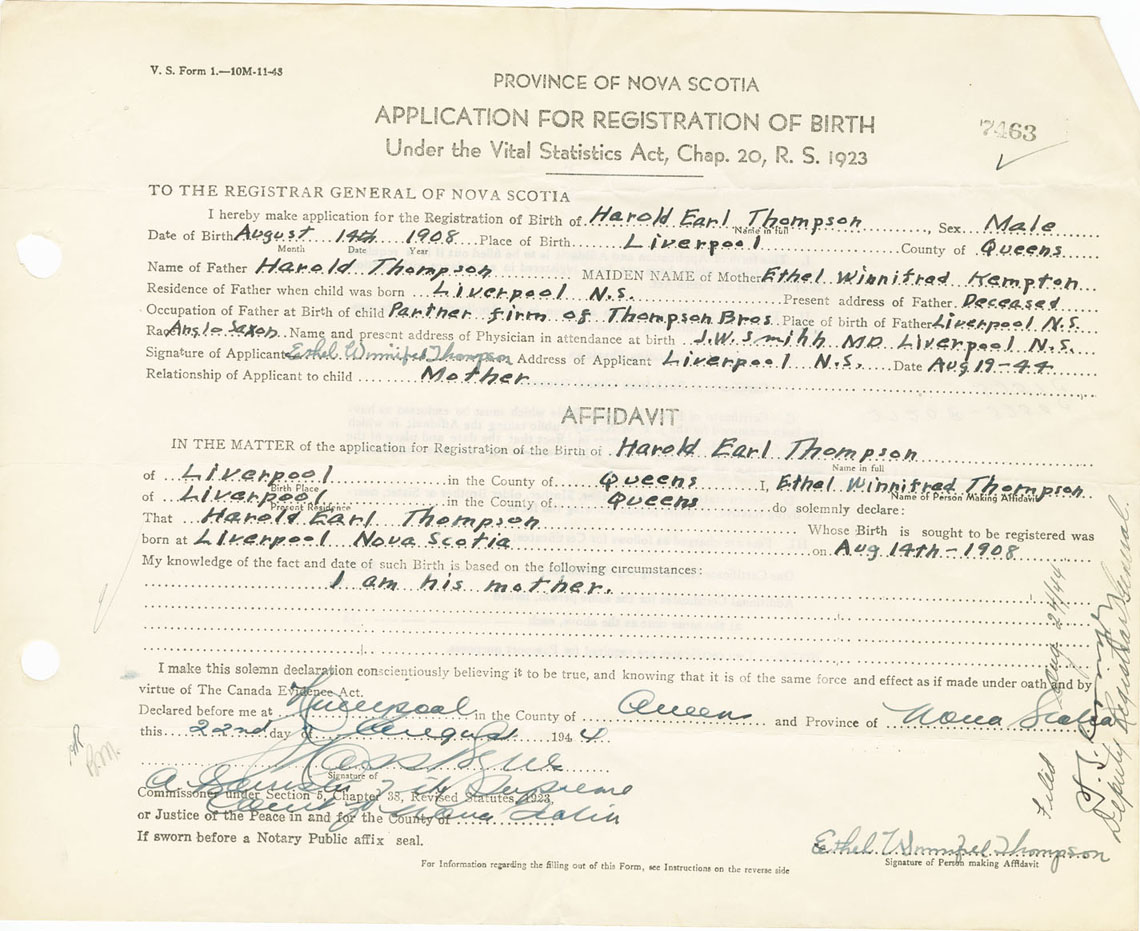 V. S. Form 1.—10M-11-43
PROVINCE OF NOVA SCOTIA
APPLICATION FOR REGISTRATION OF BIRTH
7463
Under the Vital Statistics Act, Chap. 20, R. S. 1923
TO THE REGISTRAR GENERAL OF NOVA SCOTIA
I hereby make application for the Registration of Birth of Harold Earl Thompson Sex Male
Name in full
Date of Birth August 14th 1908 Place of Birth Liverpool County of Queens
Month Date Year
Name of Father Harold Thompson MAIDEN NAME of Mother Ethel Winnifred Kempton
Residence of Father when child was born Liverpool N.S. Present address of Father Deceased
Occupation of Father at Birth of child Partner firm of Thompson Bros. Place of birth of Father Liverpool N.S.
Race Anglo Saxon Name and present address of Physician in attendance at birth J.W. Smith MD Liverpool N.S.
Signature of Applicant Ethel Winnifred Thompson Address of Applicant Liverpool N.S. Date Aug 19-44
Relationship of Applicant to child Mother
AFFIDAVIT
IN THE MATTER of the application for Registration of the Birth of Harold Earl Thompson
Name in full
of Liverpool in the County of Queens I, Ethel Winnifred Thompson
Birth Place Name of Person Making Affidavit
of Liverpool in the County of Queens do solemnly declare:
Present Residence
That Harold Earl Thompson Whose Birth is sought to be registered was
born at Liverpool Nova Scotia on Aug 14th - 1908
My knowledge of the fact and date of such Birth is based on the following circumstances:
I am his mother.
I make this solemn declaration conscientiously believing it to be true, and knowing that it is of the same force and effect as if made under oath and by
virtue of The Canada Evidence Act.
Declared before me at Liverpool in the County of Queen and Province of Nova Scotia
this 22nd day of August 1944
Signature of
A Barrister of the Supreme
Commissoner under Section 5, Chapter 38, Revised Statutes 1923,
Court of Nova Scotia
or Justice of the Peace in and for the County of
If sworn before a Notary Public affix seal.
Ethel Winnifred Thompson
Signature of Person making Affidavit
For Information regarding the filling out of this Form, see Instructions on the reverse side
Filed Aug 24/44
Deputy Registrar General.